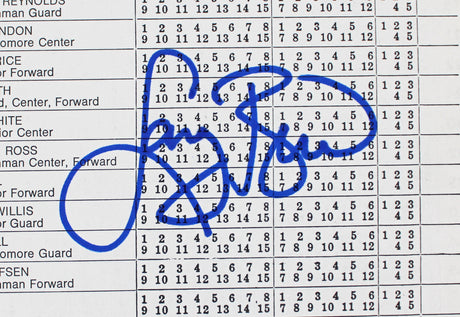 REYNOLDS
hman Guard
NDON 1 2 3 4 5 6 7 8 1 2 3 4 5 6 1 2 3
omore Center 9 10 11 12 13 14 15 7 8 9 10 11 12 4 5
RICE 1 2 3 4 5 6 7 8 1 2 3 4 5 6 1 2 3
or Forward 9 10 11 12 13 14 15 7 8 9 10 11 12 4 5
TH 1 2 3 4 5 6 7 8 1 2 3 4 5 6 1 2 3
d, Center, Forward 9 10 11 12 13 14 15 7 8 9 10 11 12 4 5
HITE 1 2 3 4 5 6 7 8 1 2 3 4 5 6 1 2 3
ior Center 9 10 11 12 13 14 15 7 8 9 10 11 12 4 5
ROSS 1 2 3 4 5 6 7 8 1 2 3 4 5 6 1 2 3
hman Center, Forward 9 10 11 12 13 14 15 7 8 9 10 11 12 4 5
1 2 3 4 5 6 7 8 1 2 3 4 5 6 1 2 3
or Forward 9 10 11 12 13 14 15 7 8 9 10 11 12 4 5
WILLIS 1 2 3 4 5 6 7 8 1 2 3 4 5 6 1 2 3
or Guard 9 10 11 12 13 14 15 7 8 9 10 11 12 4 5
LL 1 2 3 4 5 6 7 8 1 2 3 4 5 6 1 2 3
omore Guard 9 10 11 12 13 14 15 7 8 9 10 11 12 4 5
FSEN 1 2 3 4 5 6 7 8 1 2 3 4 5 6 1 2 3
hman Forward 9 10 11 12 13 14 15 7 8 9 10 11 12 4 5
1 2 3 4 5 6 7 8 1 2 3 4 5 6 1 2 3
9 10 11 12 13 14 15 7 8 9 10 11 12 4 5
Larry Bird